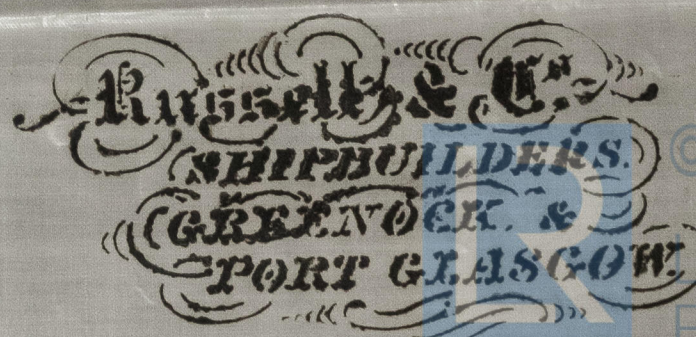 Russell & Co.
SHIPBUILDERS.
GREENOCK. &
PORT GLASGOW.
LR
©
L